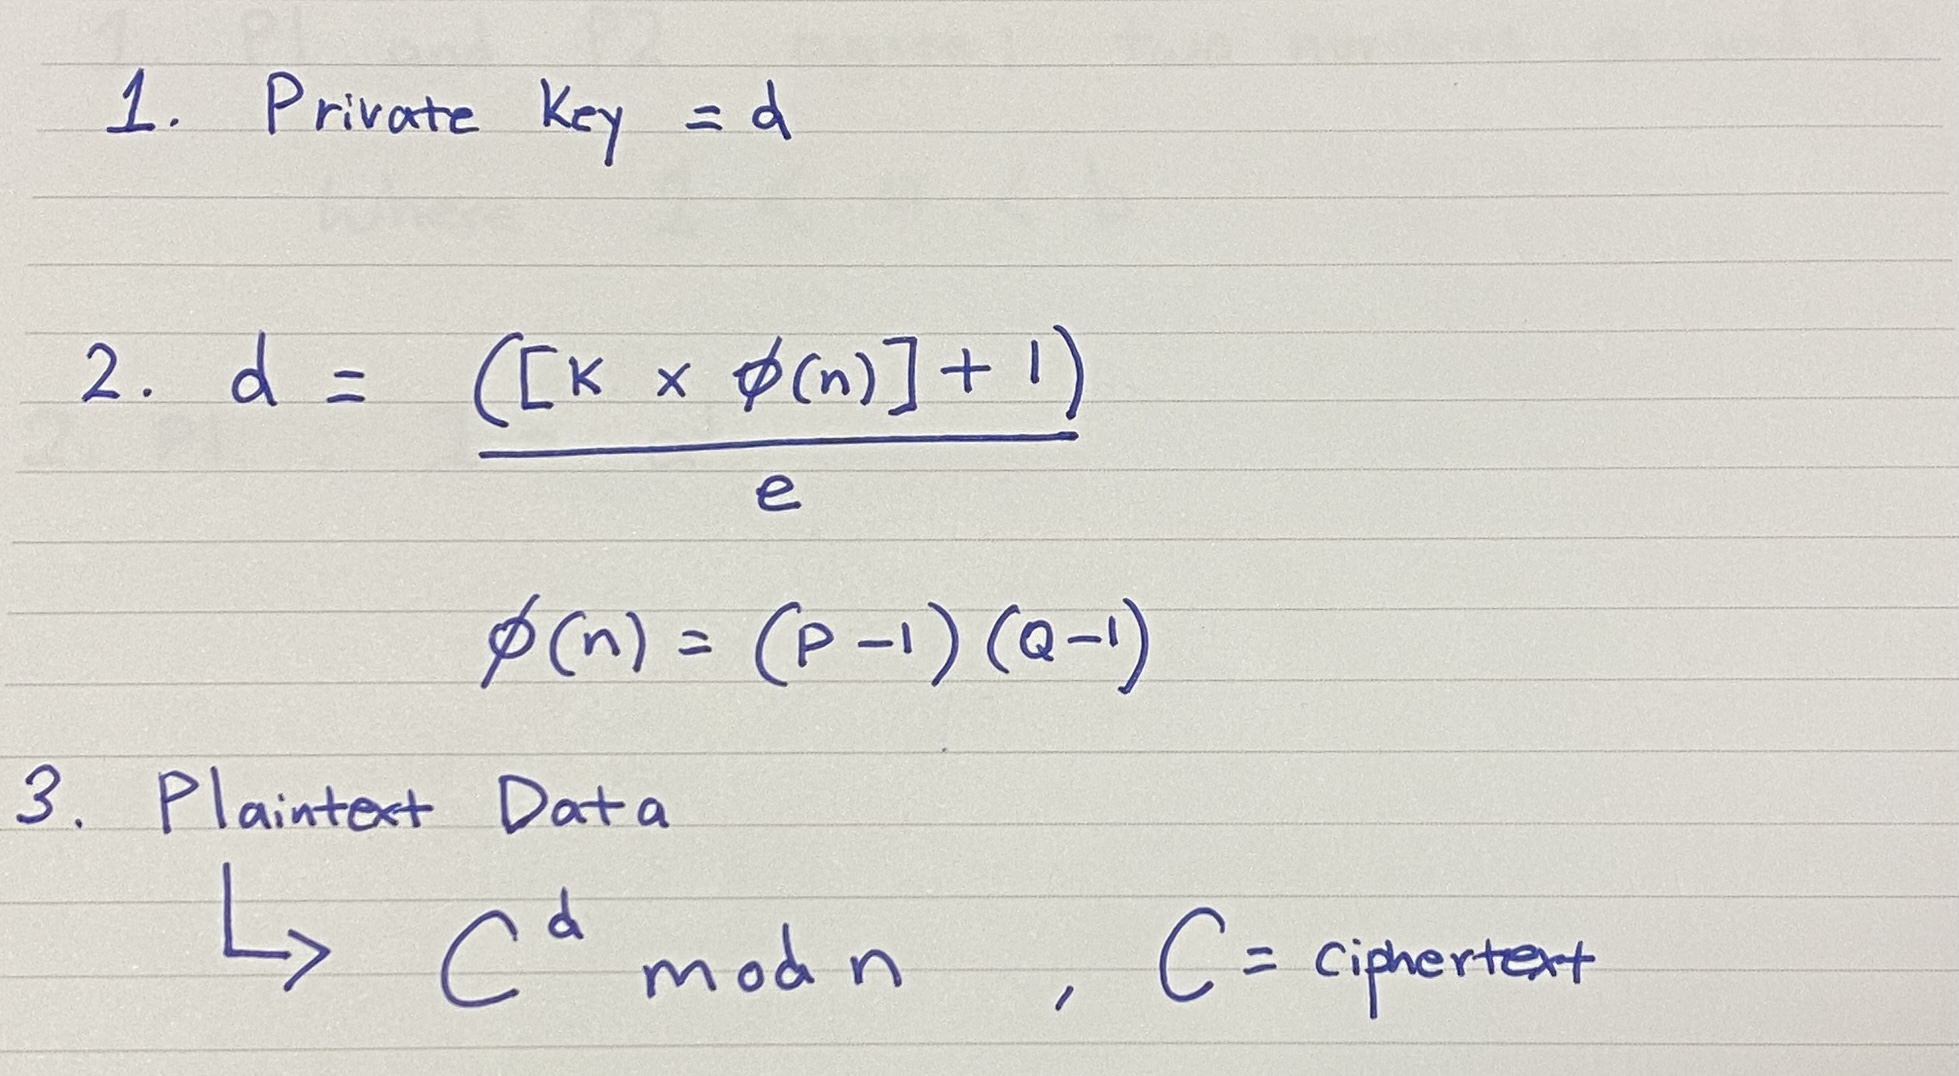 1. Private Key = d
2. d = ([K × ϕ(n)] + 1)
e
ϕ(n) = (P-1) (Q-1)
3. Plaintext Data
↳ C^d mod n , C = ciphertext